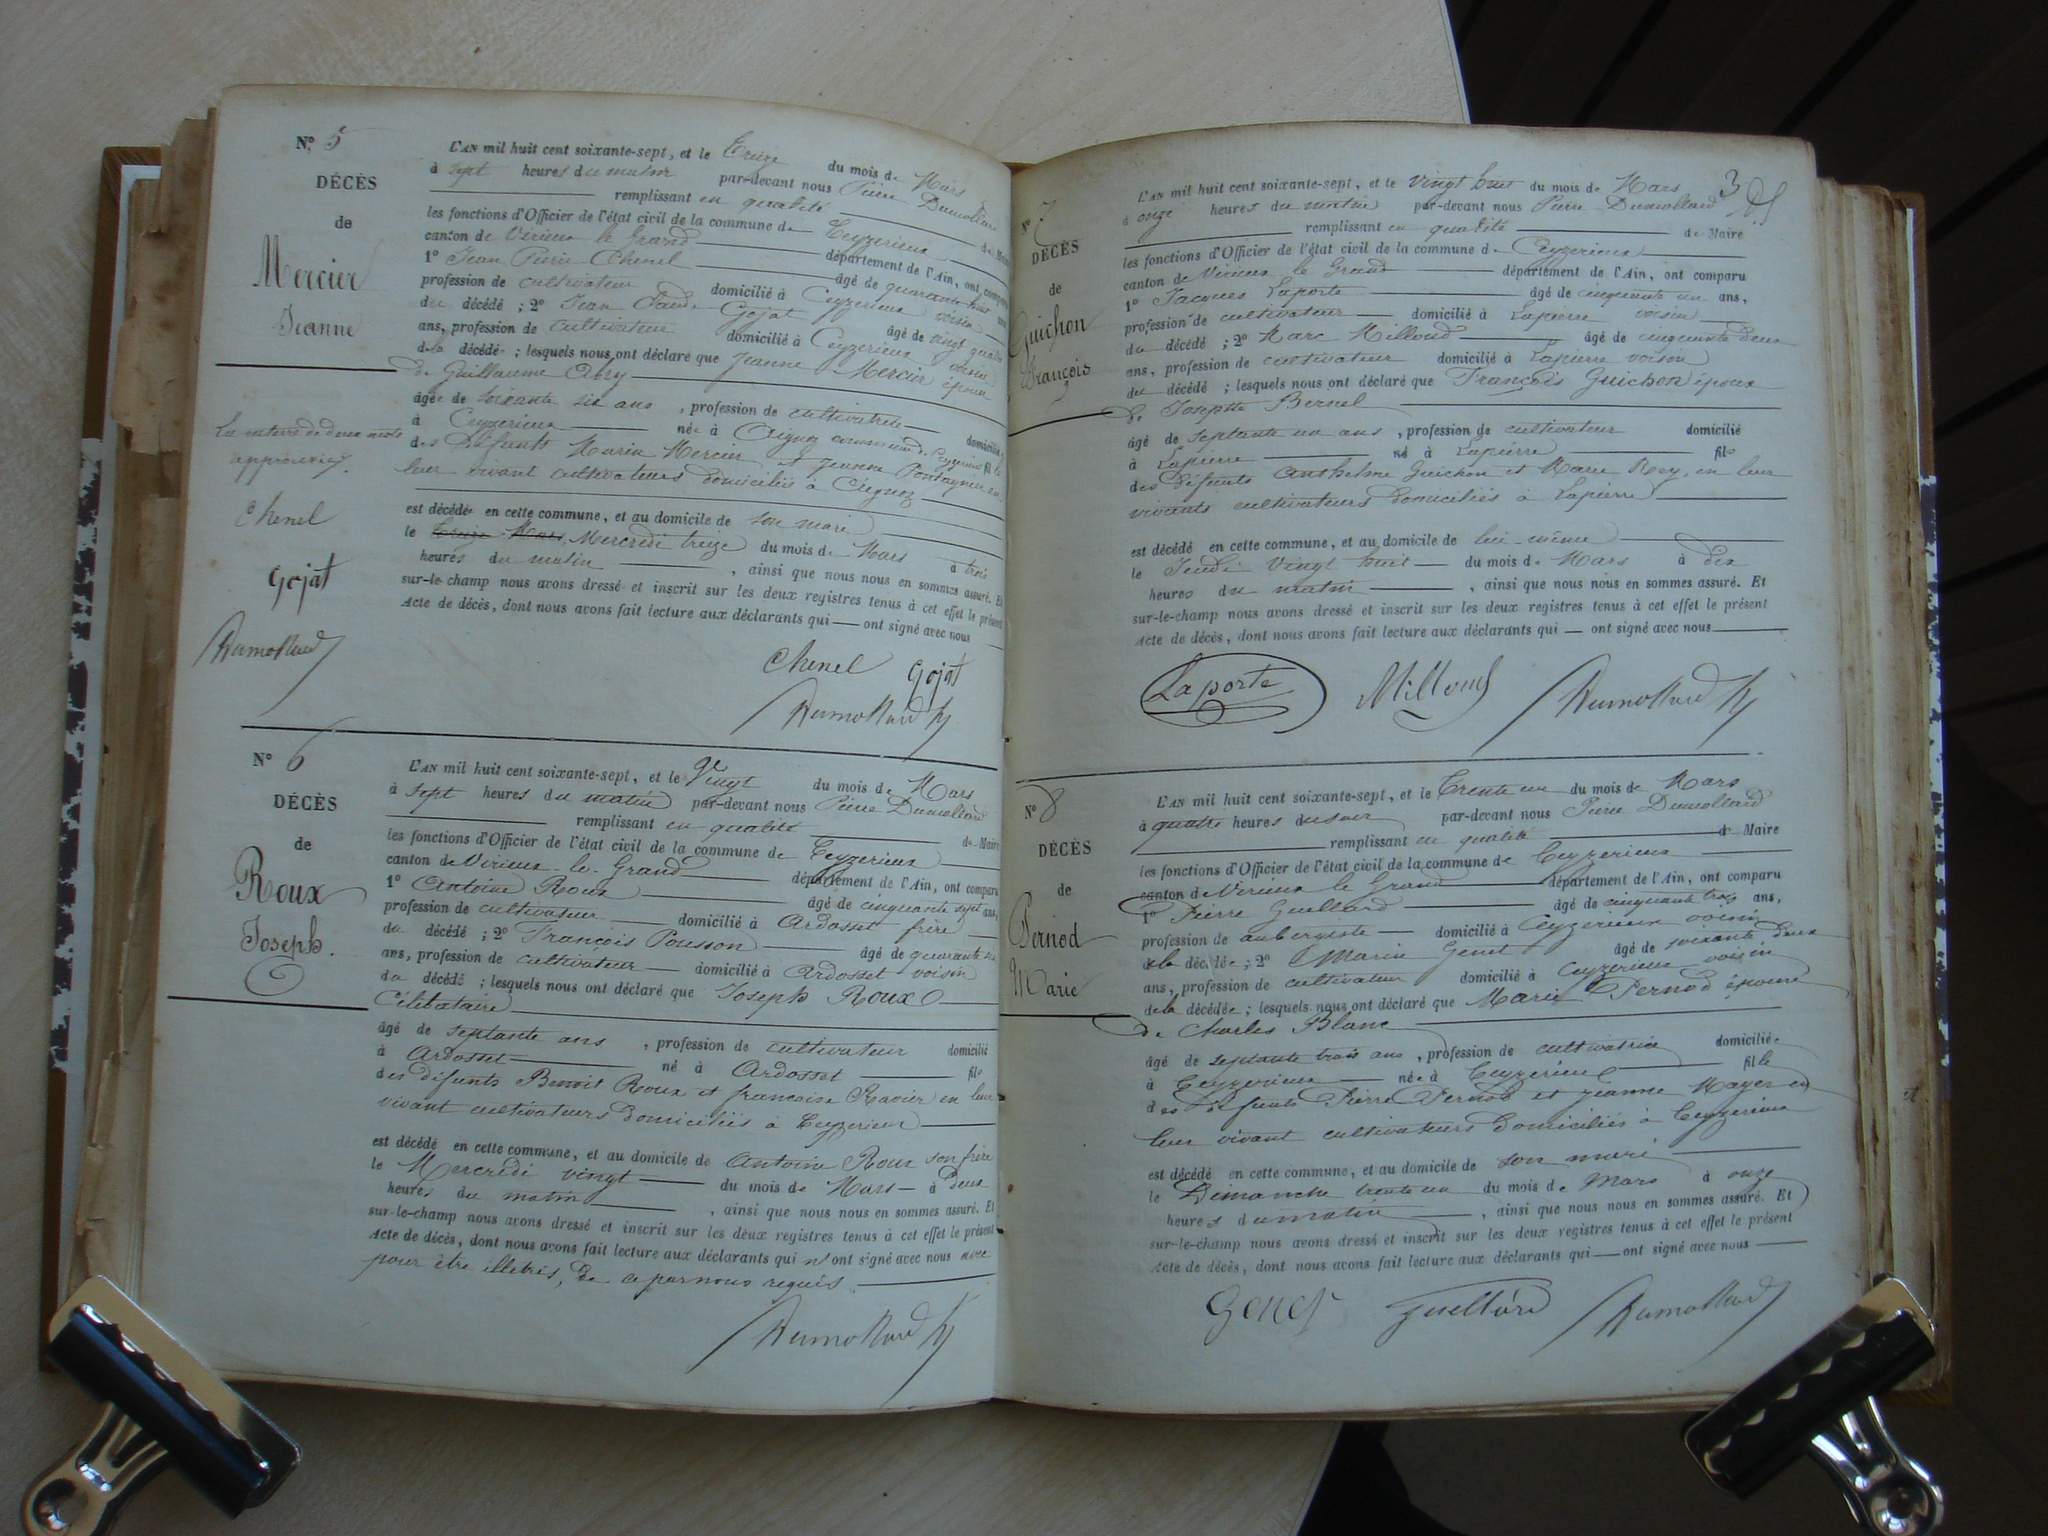 N° 5
DÉCÈS
de
Mercier
Jeanne
La rature de deux mots
approuvée.
Chenel
Gojat
Dumollard
L'AN mil huit cent soixante-sept, et le Treize du mois de Mars
à sept heures du matin par-devant nous Pierre Dumollard
remplissant en qualité de Maire
les fonctions d'Officier de l'état civil de la commune de Ceyzerieux
canton de Virieux le Grand département de l'Ain, ont comparu
1° Jean Pierre Chenel âgé de quarante huit ans
profession de cultivateur domicilié à Ceyzerieux voisin
du décédé ; 2° Jean Claude Gojat âgé de vingt quatre
ans, profession de cultivateur domicilié à Ceyzerieux voisin
de la décédé ; lesquels nous ont déclaré que Jeanne Mercier épouse
de Guillaume Abry
âgée de soixante six ans , profession de cultivatrice domiciliée
à Ceyzerieux née à Aignoz commune de Ceyzerieux fille
des défunts Marin Mercier et Jeanne en
leur vivant cultivateurs domiciliés à Aignoz
est décédée en cette commune, et au domicile de son mari
le Treize Mars Mercredi treize du mois de Mars à trois
heures du matin , ainsi que nous nous en sommes assuré. Et
sur-le-champ nous avons dressé et inscrit sur les deux registres tenus à cet effet le présent
Acte de décès, dont nous avons fait lecture aux déclarants qui — ont signé avec nous
Chenel Gojat
Dumollard
N° 6
DÉCÈS
de
Roux
Joseph.
L'AN mil huit cent soixante-sept, et le Vingt du mois de Mars
à sept heures du matin par-devant nous Pierre Dumollard
remplissant en qualité de Maire
les fonctions d'Officier de l'état civil de la commune de Ceyzerieux
canton de Virieux-le-Grand département de l'Ain, ont comparu
1° Antoine Roux âgé de cinquante sept ans,
profession de cultivateur domicilié à Ardosset frère
du décédé ; 2° François Pousson âgé de quarante six
ans, profession de cultivateur domicilié à Ardosset voisin
du décédé ; lesquels nous ont déclaré que Joseph Roux
Célibataire
âgé de septante ans , profession de cultivateur domicilié
à Ardosset né à Ardosset fils
des défunts Benoit Roux et françoise Ravier en leur
vivant cultivateurs domiciliés à Ceyzerieux
est décédé en cette commune, et au domicile de Antoine Roux son frère
le Mercredi vingt du mois de Mars — à deux
heures du matin , ainsi que nous nous en sommes assuré. Et
sur-le-champ nous avons dressé et inscrit sur les deux registres tenus à cet effet le présent
Acte de décès, dont nous avons fait lecture aux déclarants qui n'ont signé avec nous
pour être illetrés, de ce par nous requis
Dumollard
3
N° 7
DÉCÈS
de
Guichon
François
L'AN mil huit cent soixante-sept, et le vingt huit du mois de Mars
à onze heures du matin par-devant nous Pierre Dumollard
remplissant en qualité de Maire
les fonctions d'Officier de l'état civil de la commune de Ceyzerieux
canton de Virieux le Grand département de l'Ain, ont comparu
1° Jacques Laporte âgé de cinquante un ans,
profession de cultivateur domicilié à Lapierre voisin
du décédé ; 2° Marc Milloud âgé de cinquante deux
ans, profession de cultivateur domicilié à Lapierre voisin
du décédé ; lesquels nous ont déclaré que François Guichon époux
de Josephte Bernel
âgé de septante un ans , profession de cultivateur domicilié
à Lapierre né à Lapierre fils
des défunts Anthelme Guichon et Marie Rey, en leur
vivants cultivateurs domiciliés à Lapierre
est décédé en cette commune, et au domicile de lui-même
le Jeudi Vingt huit — du mois de Mars à dix
heures du matin , ainsi que nous nous en sommes assuré. Et
sur-le-champ nous avons dressé et inscrit sur les deux registres tenus à cet effet le présent
Acte de décès, dont nous avons fait lecture aux déclarants qui — ont signé avec nous
Laporte Milloud Dumollard
N° 8
DÉCÈS
de
Pernod
Marie
L'AN mil huit cent soixante-sept, et le Trente un du mois de Mars
à quatre heures du soir par-devant nous Pierre Dumollard
remplissant en qualité de Maire
les fonctions d'Officier de l'état civil de la commune de Ceyzerieux
canton de Virieux le Grand département de l'Ain, ont comparu
1° Pierre Guillard âgé de cinquante trois ans,
profession de aubergiste — domicilié à Ceyzerieux voisin
de la décédée ; 2° Marin Genet âgé de soixante deux
ans, profession de cultivateur domicilié à Ceyzerieux voisin
de la décédée ; lesquels nous ont déclaré que Marie Pernod épouse
de Charles Blanc
âgé de septante trois ans , profession de cultivatrice domiciliée
à Ceyzerieux née à Ceyzerieux fille
des défunts Pierre Pernod et Jeanne Mayer en
leur vivant cultivateurs domiciliés à Ceyzerieux
est décédé en cette commune, et au domicile de son mari
le Dimanche trente un du mois de Mars à onze
heures du matin , ainsi que nous nous en sommes assuré. Et
sur-le-champ nous avons dressé et inscrit sur les deux registres tenus à cet effet le présent
Acte de décès, dont nous avons fait lecture aux déclarants qui — ont signé avec nous
Genet Guillard Dumollard